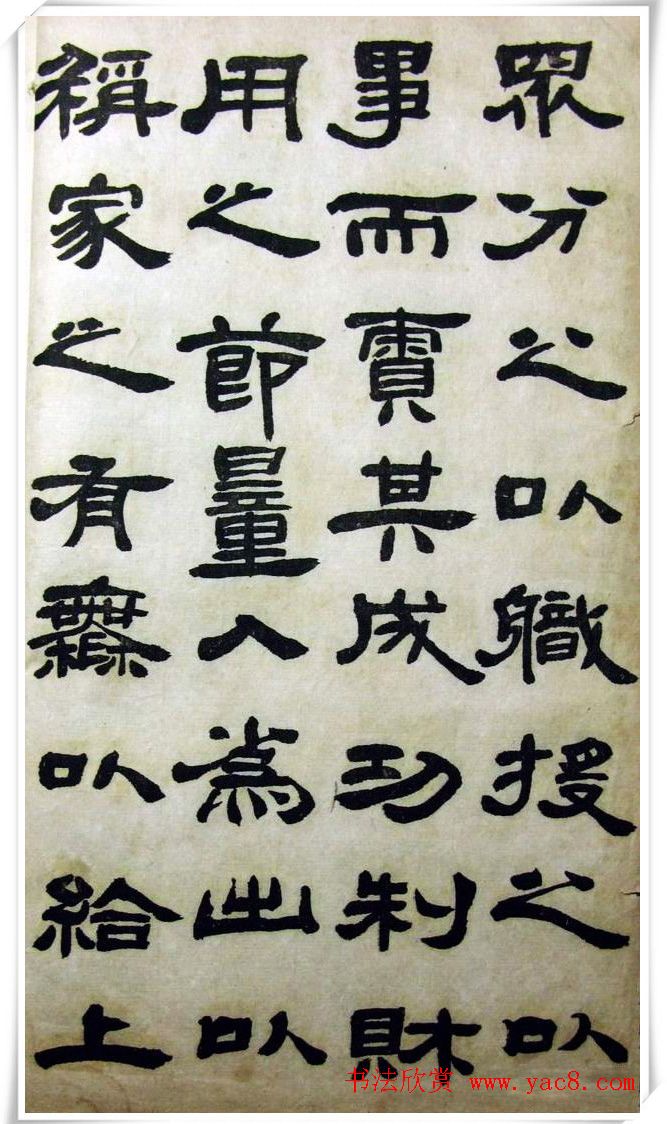 眾分之以職授之以
事而責其成功制財
用之節量入為出以
稱家之有無以給上
书法欣赏 www.yac8.com